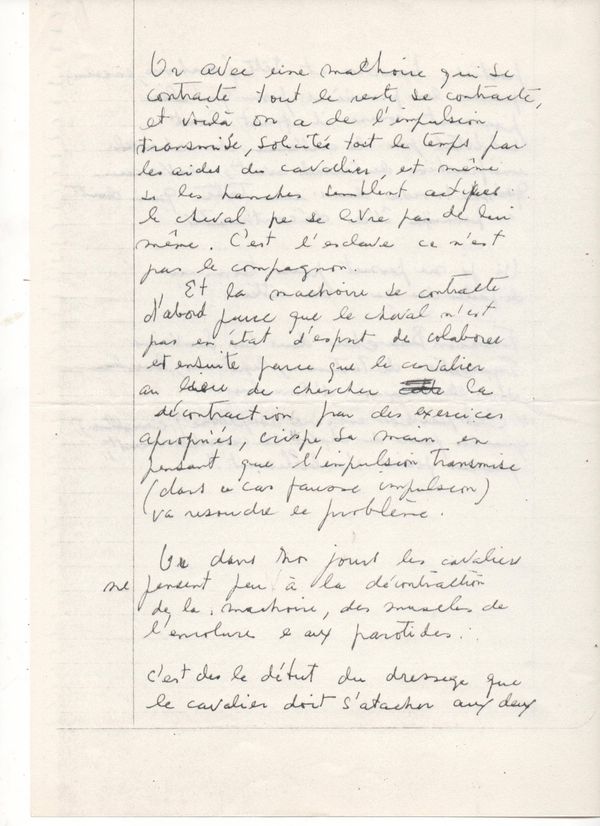 Or avec une machoire qui se
contracte tout le reste se contracte,
et voilà on a de l'impulsion
transmise, solicitée tout le temps par
les aides du cavalier, et même
si les hanches semblent actives
le cheval ne se livre pas de lui
même. C'est l'esclave ce n'est
pas le compagnon.
Et la machoire se contracte
d'abord parce que le cheval n'est
pas en état d'esprit de colaborer
et ensuite parce que le cavalier
au lieu de chercher la
décontraction par des exercices
apropriés, crispe sa main en
pensant que l'impulsion transmise
(dans ce cas fausse impulsion)
va resoudre le problème.
Or dans nos jours les cavaliers
ne pensent peu à la décontraction
de la machoire, des muscles de
l'encolure e aux parotides.
c'est des le début du dressage que
le cavalier doit s'atacher aux deux